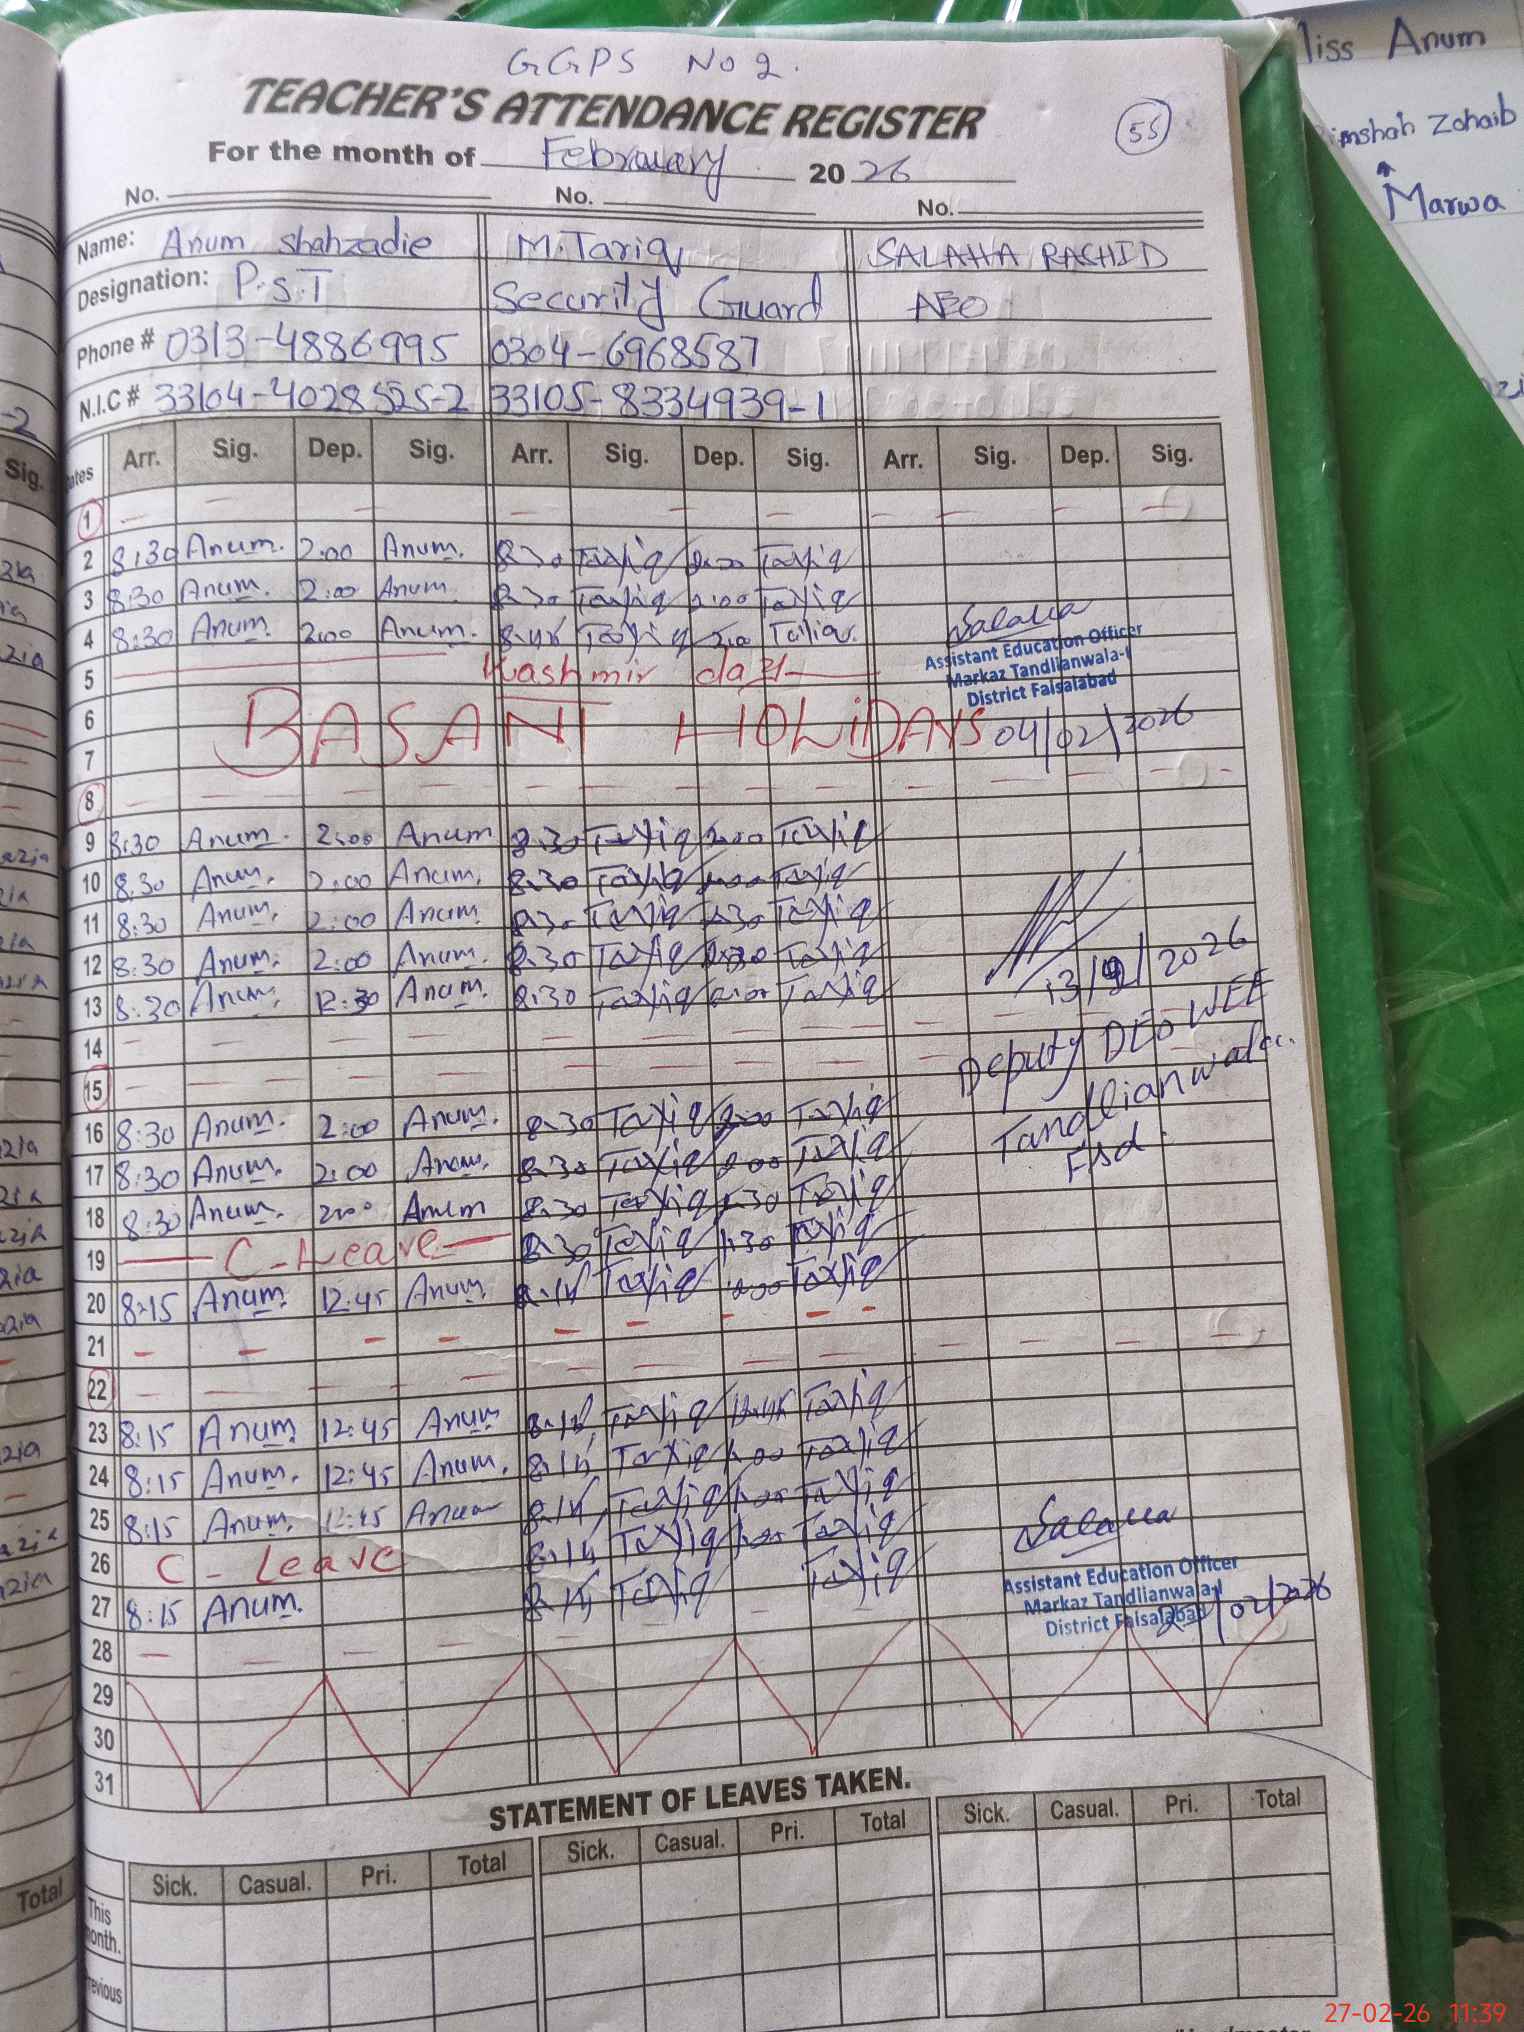 GGPS No 2.
TEACHER'S ATTENDANCE REGISTER
55
For the month of February 2026
No. No. No.
Name: Anum shahzadie M.Tariq SALAHA RASHID
Designation: P.S.T Security Guard AEO
Phone # 0313-4886995 0304-6968587
N.I.C # 33104-4028525-2 33105-8334939-1
Arr. Sig. Dep. Sig. Arr. Sig. Dep. Sig. Arr. Sig. Dep. Sig.
1
2 8:30 Anum. 2:00 Anum. 8:30 Tariq 2:00 Tariq
3 8:30 Anum. 2:00 Anum. 8:30 Tariq 2:00 Tariq
4 8:30 Anum. 2:00 Anum. 8:45 Tariq Tariq
Salaha
Assistant Education Officer
Markaz Tandlianwala-I
District Faisalabad
04/02/2026
5 Kashmir day
6 BASANT HOLIDAYS
7
8
9 8:30 Anum. 2:00 Anum 8:30 Tariq 2:00 Tariq
10 8:30 Anum. 2:00 Anum. 8:30 Tariq Tariq
11 8:30 Anum. 2:00 Anum 8:30 Tariq Tariq
12 8:30 Anum. 2:00 Anum. 8:30 Tariq Tariq
13 8:30 Anum. 12:30 Anum. 8:30 Tariq Tariq
13/2/2026
Deputy DEO WEE
Tandlianwala.
Fsd.
14
15
16 8:30 Anum. 2:00 Anum. 8:30 Tariq 2:00 Tariq
17 8:30 Anum. 2:00 Anum. 8:30 Tariq 2:00 Tariq
18 8:30 Anum. 2:00 Anum 8:30 Tariq Tariq
19 C-Leave 8:30 Tariq 1:30 Tariq
20 8:15 Anum. 12:45 Anum. 8:15 Tariq Tariq
21
22
23 8:15 Anum 12:45 Anum 8:15 Tariq 12:45 Tariq
24 8:15 Anum. 12:45 Anum. 8:15 Tariq 1:00 Tariq
25 8:15 Anum. 12:45 Anum 8:15 Tariq 1:00 Tariq
26 C - Leave 8:15 Tariq 1:00 Tariq
27 8:15 Anum. 8:15 Tariq Tariq
Salaha
Assistant Education Officer
Markaz Tandlianwala-I
District Faisalabad
/02/2026
28
29
30
31
STATEMENT OF LEAVES TAKEN.
Sick. Casual. Pri. Total Sick. Casual. Pri. Total Sick. Casual. Pri. Total
This
Sig.
Total
Miss Anum
Zohaib
Marwa
27-02-26 11:39